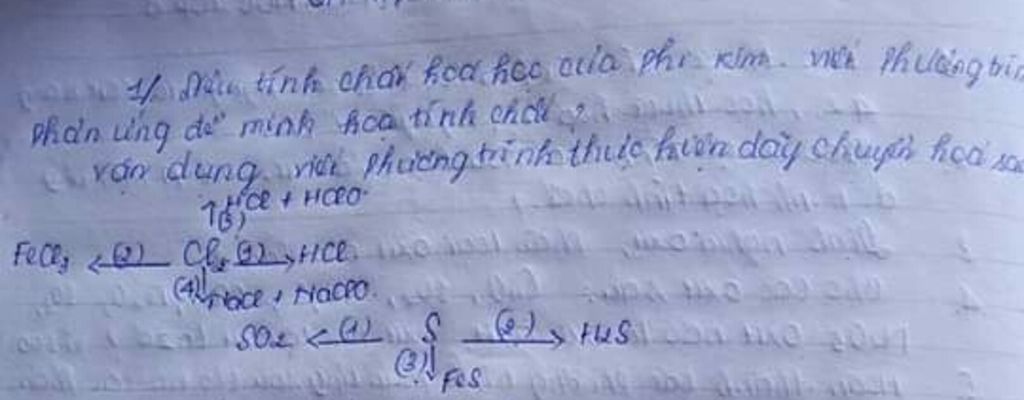 1/ Nêu tính chất hoá học của phi kim. viết phương trìn
phản ứng để minh hoạ tính chất ?
vận dụng viết phương trình thực hiện dãy chuyển hoá sau
↑(3) HCl + HClO
FeCl₃ ←(2) Cl₂ (1)→ HCl
(4)↓ NaCl + NaClO.
SO₂ ←(1) S (2)→ H₂S
(3)↓ FeS